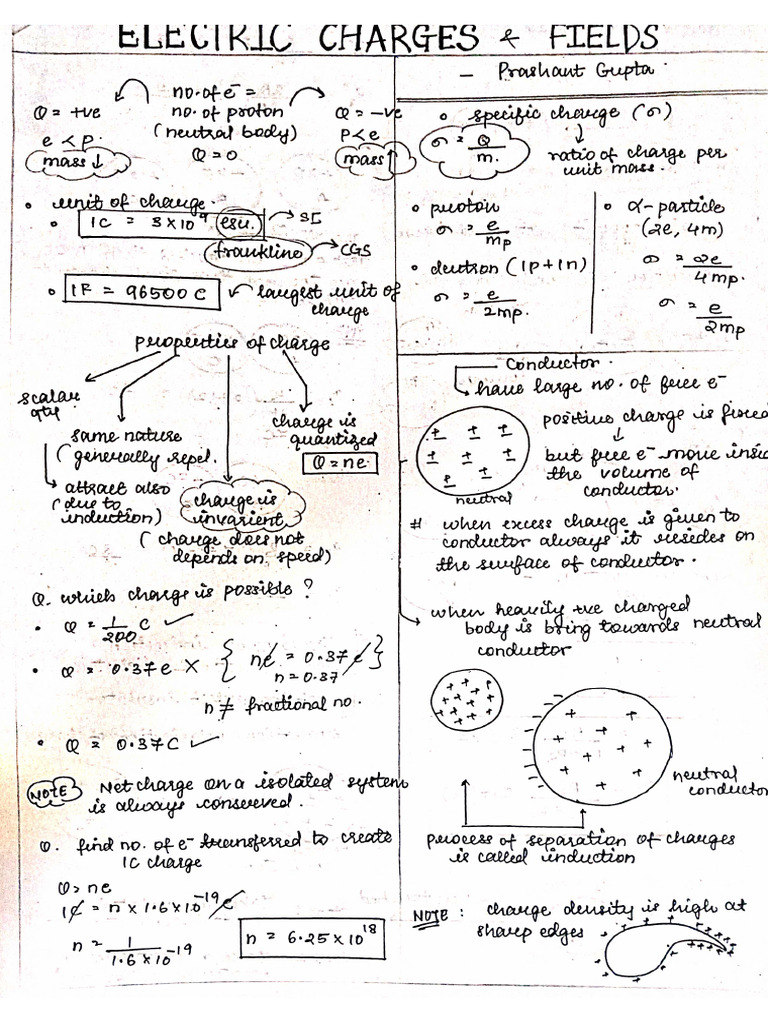 ELECTRIC CHARGES & FIELDS
no. of e⁻ =
no. of proton
(neutral body)
Q = 0
Q = +ve
e < p.
mass ↓
Q = -ve
p < e
mass ↑
• unit of charge.
• 1C = 3×10⁹ esu. → SI
frankline → CGS
• 1F = 96500 C ← largest unit of
charge
properties of charge
scalar
qty.
same nature
(generally repel.
→ attract also
(due to
induction)
charge is
invarient
(charge does not
depends on speed)
charge is
quantized
Q = ne.
Q. which charge is possible ?
• Q = 1/200 C ✓
• Q = 0.37e × { ne = 0.37e }
n = 0.37
n ≠ fractional no.
• Q = 0.37C ✓
NOTE Net charge on a isolated system
is always conserved.
Q. find no. of e⁻ transferred to create
1C charge
Q = ne
1C = n × 1.6×10⁻¹⁹ C
n = 1/1.6×10⁻¹⁹
n = 6.25×10¹⁸
– Prashant Gupta.
• specific charge (σ)
σ = Q/m.
ratio of charge per
unit mass.
• proton
σ = e/mp
• deutron (1p+1n)
σ = e/2mp.
• α-particle
(2e, 4m)
σ = 2e/4mp.
σ = e/2mp
conductor.
→ have large no. of free e⁻
± ± ±
± ± ±
± ±
neutral
positive charge is fixed
↓
but free e⁻ move insid
the volume of
conductor.
# when excess charge is given to
conductor always it resedes on
the surface of conductor.
→ when heavily +ve charged
body is bring towards neutral
conductor
neutral
conductor
process of separation of charges
is called induction
NOTE : charge density is high at
sharp edges